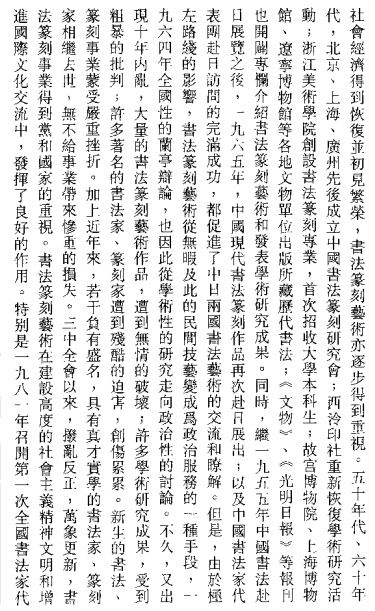 社會經濟得到恢復並初見繁榮，書法篆刻藝術亦逐步得到重視。五十年代、六十年
代，北京、上海、廣州先後成立中國書法篆刻研究會；西泠印社重新恢復學術研究活
動；浙江美術學院創設書法篆刻專業，首次招收大學本科生；故宮博物院、上海博物
館、遼寧博物館等各地文物單位出版所藏歷代書法；《文物》、《光明日報》等報刊
也開闢專欄介紹書法篆刻藝術和發表學術研究成果。同時，繼一九五五年中國書法赴
日展覽之後，一九六五年，中國現代書法篆刻作品再次赴日展出；以及中國書法家代
表團赴日訪問的完滿成功，都促進了中日兩國書法藝術的交流和瞭解。但是，由於極
左路綫的影響，書法篆刻藝術從無暇及此的民間技藝變成爲政治服務的一種手段，一
九六四年全國性的蘭亭辯論，也因此從學術性的研究走向政治性的討論。不久，又出
現十年内亂，大量的書法篆刻藝術作品，遭到無情的破壞；許多學術研究成果，受到
粗暴的批判；許多著名的書法家、篆刻家遭到殘酷的迫害，創傷累累。新生的書法、
篆刻事業蒙受嚴重挫折。加上近年來，若干負有盛名，具有真才實學的書法家、篆刻
家相繼去世，無不給事業帶來慘重的損失。三中全會以來，撥亂反正，萬象更新，書
法篆刻事業得到黨和國家的重視。書法篆刻藝術在建設高度的社會主義精神文明和增
進國際文化交流中，發揮了良好的作用。特別是一九八一年召開第一次全國書法家代